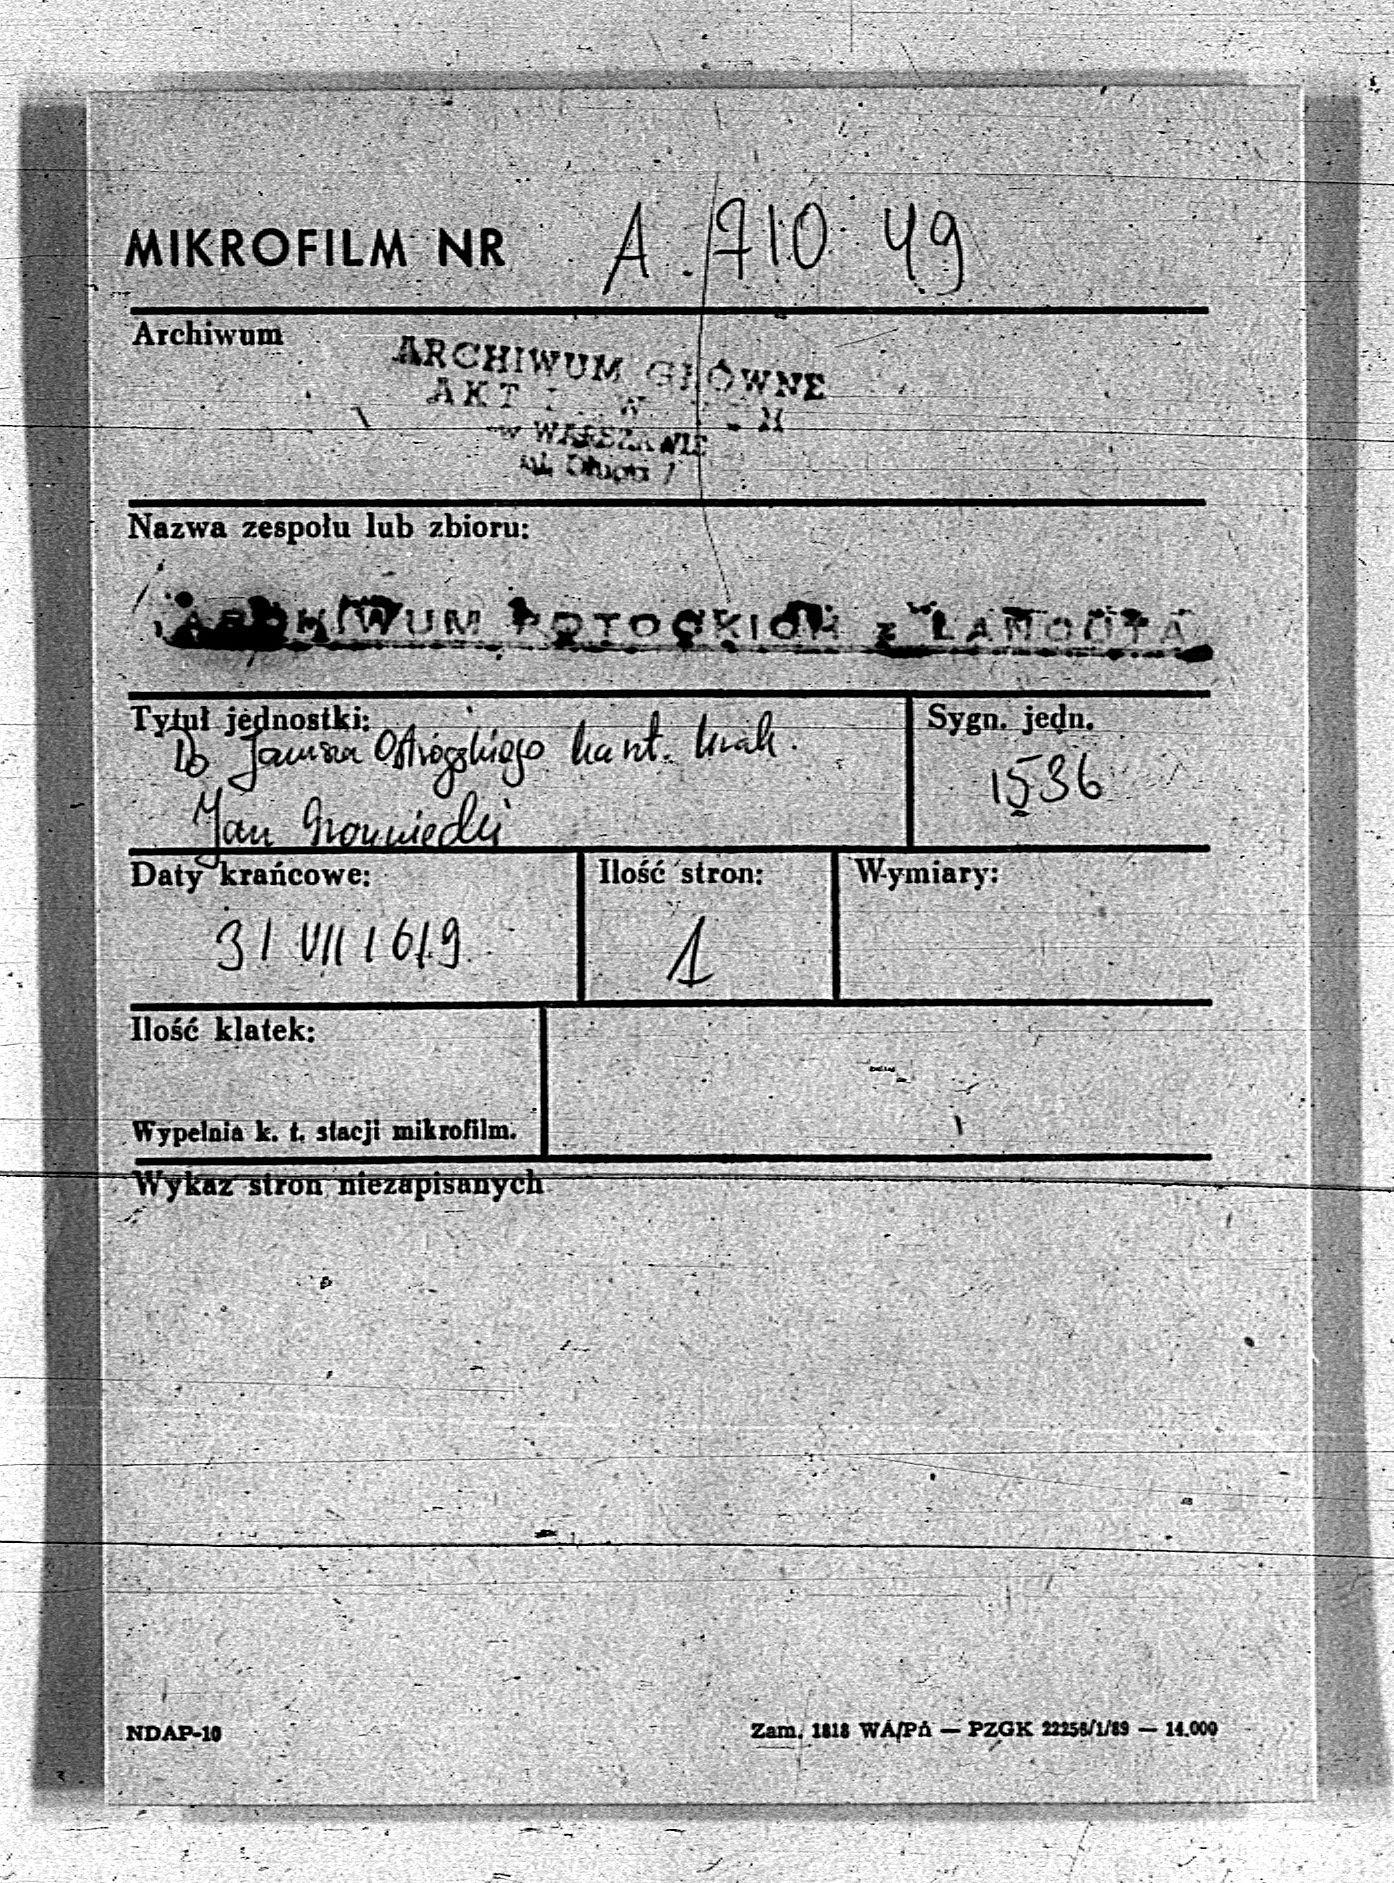 MIKROFILM NR A. 710 49
Archiwum
ARCHIWUM GŁÓWNE
AKT
w WARSZAWIE
ul. Długa 7
Nazwa zespołu lub zbioru:
ARCHIWUM POTOCKICH z ŁAŃCUTA
Tytuł jednostki:
Do Janusza Ostrogskiego kaszt. krak.
Jan
Sygn. jedn.
1536
Daty krańcowe:
31 VII 1619
Ilość stron:
1
Wymiary:
Ilość klatek:
Wypełnia k. t. stacji mikrofilm.
Wykaz stron niezapisanych
NDAP-10
Zam. 1818 WA/PA — PZGK 22256/1/89 — 14.000